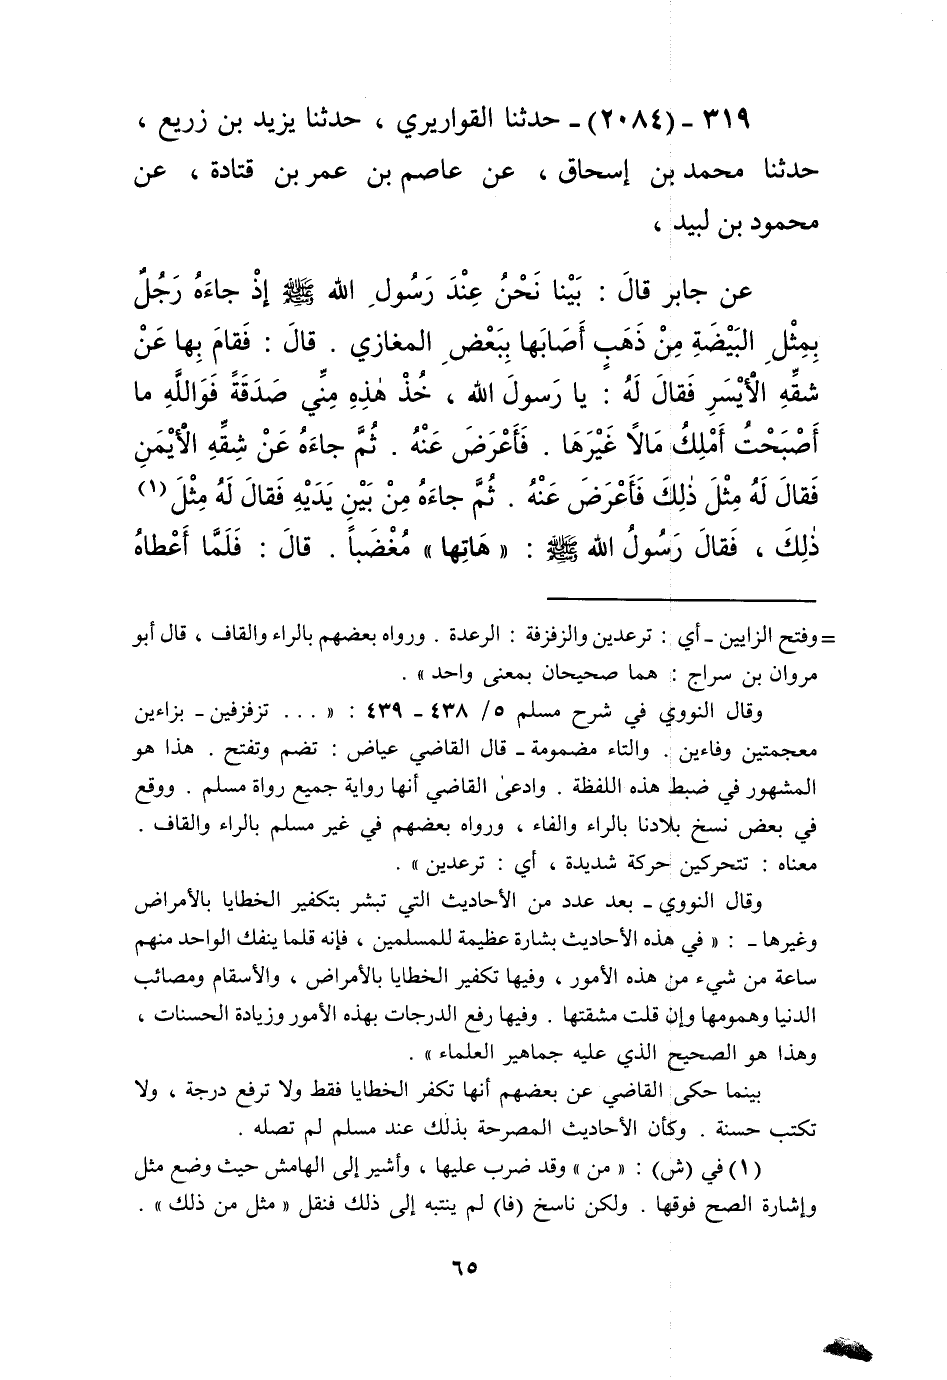 ٣١٩ - (٢٠٨٤) - حدثنا القواريري ، حدثنا يزيد بن زريع ،
حدثنا محمد بن إسحاق ، عن عاصم بن عمر بن قتادة ، عن
محمود بن لبيد ،
عن جابر قالَ : بَيْنا نَحْنُ عِنْدَ رَسُولِ الله ﷺ إذْ جاءَهُ رَجُلٌ
بِمِثْلِ البَيْضَةِ مِنْ ذَهَبٍ أَصَابَها بِبَعْضِ المغازي . قالَ : فَقامَ بِها عَنْ
شقِّهِ الأَيْسَرِ فَقالَ لَهُ : يا رَسولَ الله ، خُذْ هٰذِهِ مِنِّي صَدَقَةً فَوَاللَّهِ ما
أَصْبَحْتُ أَمْلِكُ مَالًا غَيْرَهَا . فَأَعْرَضَ عَنْهُ . ثُمَّ جاءَهُ عَنْ شِقِّهِ الأَيْمَنِ
فَقالَ لَهُ مِثْلَ ذٰلِكَ فَأَعْرَضَ عَنْهُ . ثُمَّ جاءَهُ مِنْ بَيْنِ يَدَيْهِ فَقالَ لَهُ مِثْلَ (١)
ذٰلِكَ ، فَقالَ رَسُولُ الله ﷺ : « هَاتِها » مُغْضَباً . قالَ : فَلَمَّا أَعْطاهُ
= وفتح الزايين - أي : ترعدين والزفزفة : الرعدة . ورواه بعضهم بالراء والقاف ، قال أبو
مروان بن سراج : هما صحيحان بمعنى واحد » .
وقال النووي في شرح مسلم ٥/ ٤٣٨ - ٤٣٩ : « ... تزفزفين - بزاءين
معجمتين وفاءين . والتاء مضمومة - قال القاضي عياض : تضم وتفتح . هذا هو
المشهور في ضبط هذه اللفظة . وادعىٰ القاضي أنها رواية جميع رواة مسلم . ووقع
في بعض نسخ بلادنا بالراء والفاء ، ورواه بعضهم في غير مسلم بالراء والقاف .
معناه : تتحركين حركة شديدة ، أي : ترعدين » .
وقال النووي - بعد عدد من الأحاديث التي تبشر بتكفير الخطايا بالأمراض
وغيرها - : « في هذه الأحاديث بشارة عظيمة للمسلمين ، فإنه قلما ينفك الواحد منهم
ساعة من شيء من هذه الأمور ، وفيها تكفير الخطايا بالأمراض ، والأسقام ومصائب
الدنيا وهمومها وإن قلت مشقتها . وفيها رفع الدرجات بهذه الأمور وزيادة الحسنات ،
وهذا هو الصحيح الذي عليه جماهير العلماء » .
بينما حكى القاضي عن بعضهم أنها تكفر الخطايا فقط ولا ترفع درجة ، ولا
تكتب حسنة . وكأن الأحاديث المصرحة بذلك عند مسلم لم تصله .
(١) في (ش) : « من » وقد ضرب عليها ، وأشير إلى الهامش حيث وضع مثل
وإشارة الصح فوقها . ولكن ناسخ (فا) لم ينتبه إلى ذلك فنقل « مثل من ذلك » .
٦٥